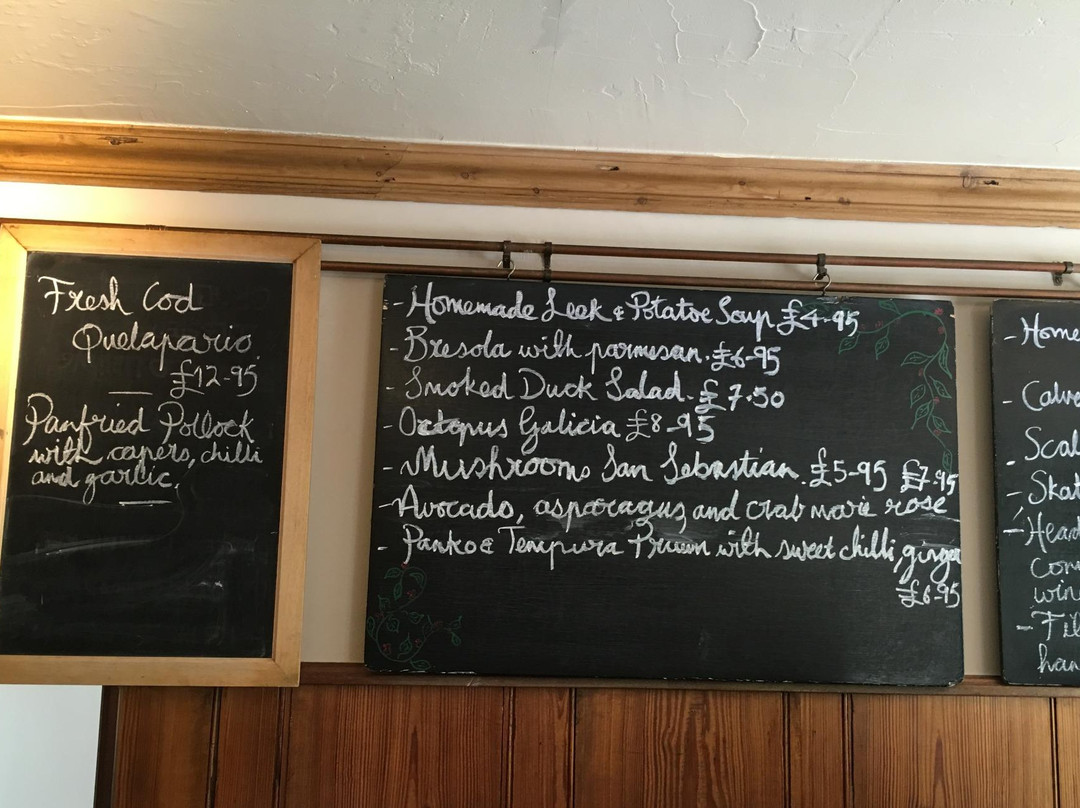 Fresh Cod
Quelapario
£12-95
Panfried Pollock
with capers, chilli
and garlic.
- Homemade Leek & Potatoe Soup £4-95
- Bresola with parmesan. £6-95
- Smoked Duck Salad. £7.50
- Octopus Galicia £8-95
- Mushrooms San Sebastian. £5-95 £7.95
- Avocado, asparagus and crab marie rose
- Panko & Tempura Prawn with sweet chilli, ginger
£6-95
- Home
- Calve
- Scal
- Skat
- Head
com
wine
- Fil
han